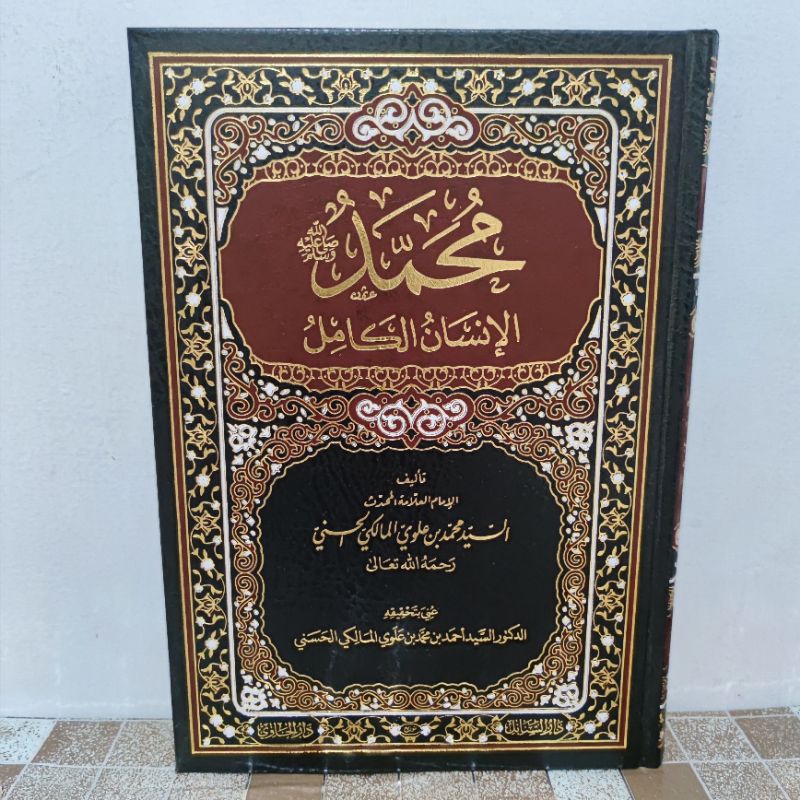 مُحَمَّدٌ ﷺ
الإِنْسَانُ الْكَامِلُ
تأليف
الإمام العلّامة المحدّث
السيّد محمد بن علوي المالكي الحسني
رحمه الله تعالى
عُني بتحقيقه
الدكتور السَّيِّد أحمد بن محمد بن علوي المالكي الحسني
دار السنابل
دار الحاوي